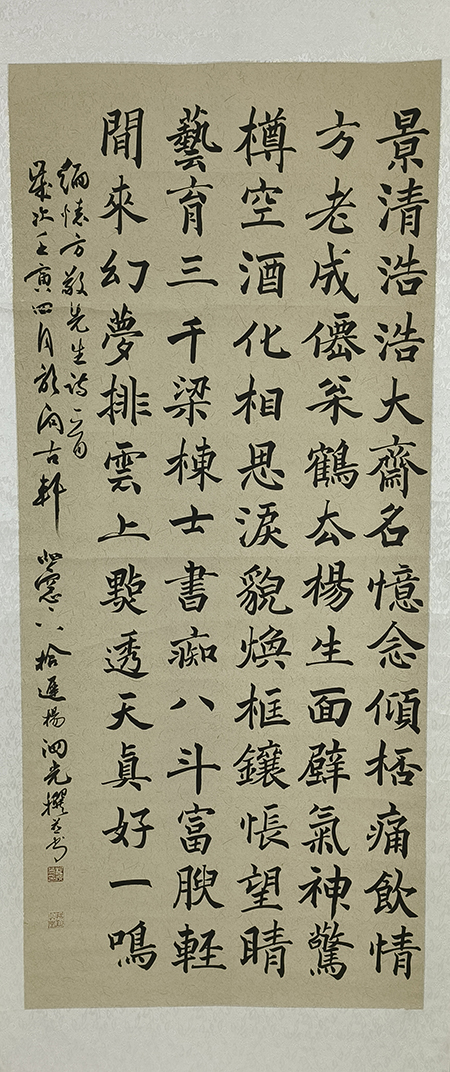 景清浩浩大齋名憶念傾桮痛飲情
方老成僊乘鶴厺楊生面壁氣神驚
樽空酒化相思淚貌煥框鑲悵望睛
藝育三千梁棟士書痴八斗富腴軽
閒來幻夢排雲上點透天眞好一鳴
緬懷方敬先生詩一首
歲次壬寅四月於向古軒 八拾遲楊泗光撰並書